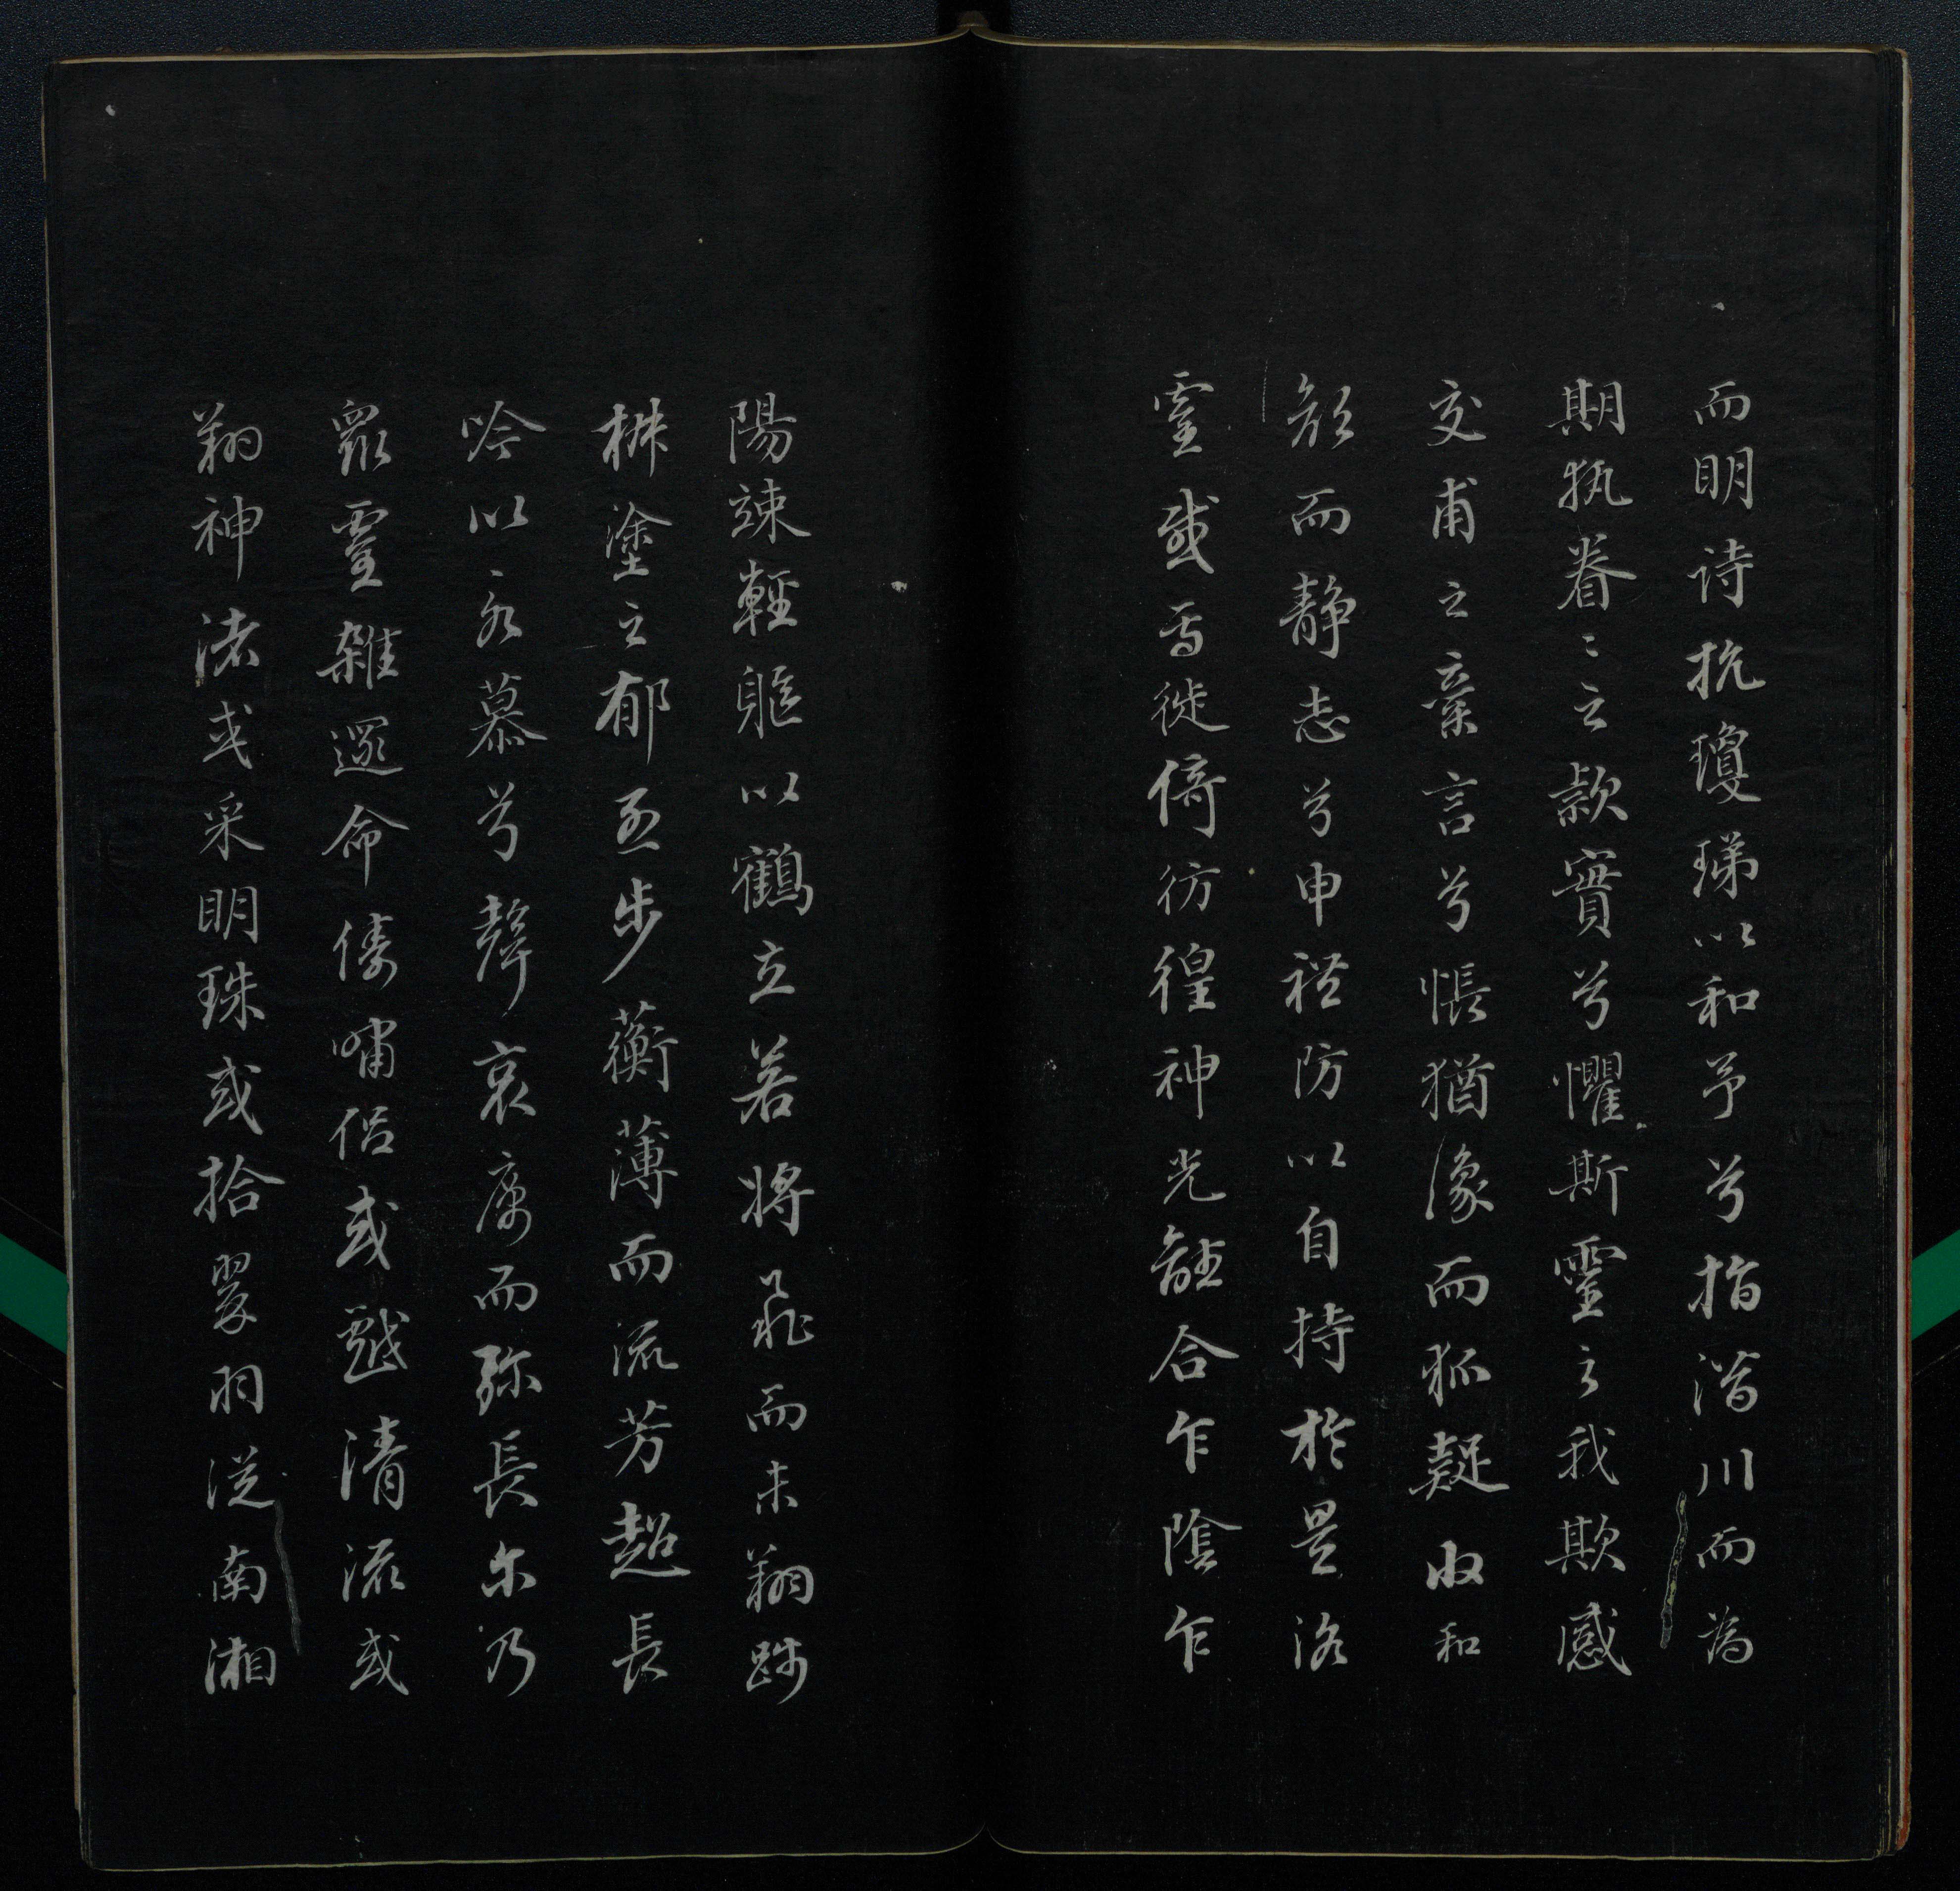 而明诗抗瓊珶以和予兮指潛川而為
期執眷〻之款實兮懼斯靈之我欺感
交甫之棄言兮悵猶豫而狐疑收和
顏而静志兮申禮防以自持於是洛
靈感焉徙倚彷徨神光離合乍陰乍
陽竦輕軀以鶴立若將飛而未翔踐
椒塗之郁烈步蘅薄而流芳超長
吟以永慕兮聲哀厲而弥長尓乃
眾靈雜遝命儔嘯侣或戲清流或
翔神渚或采明珠或拾翠羽從南湘